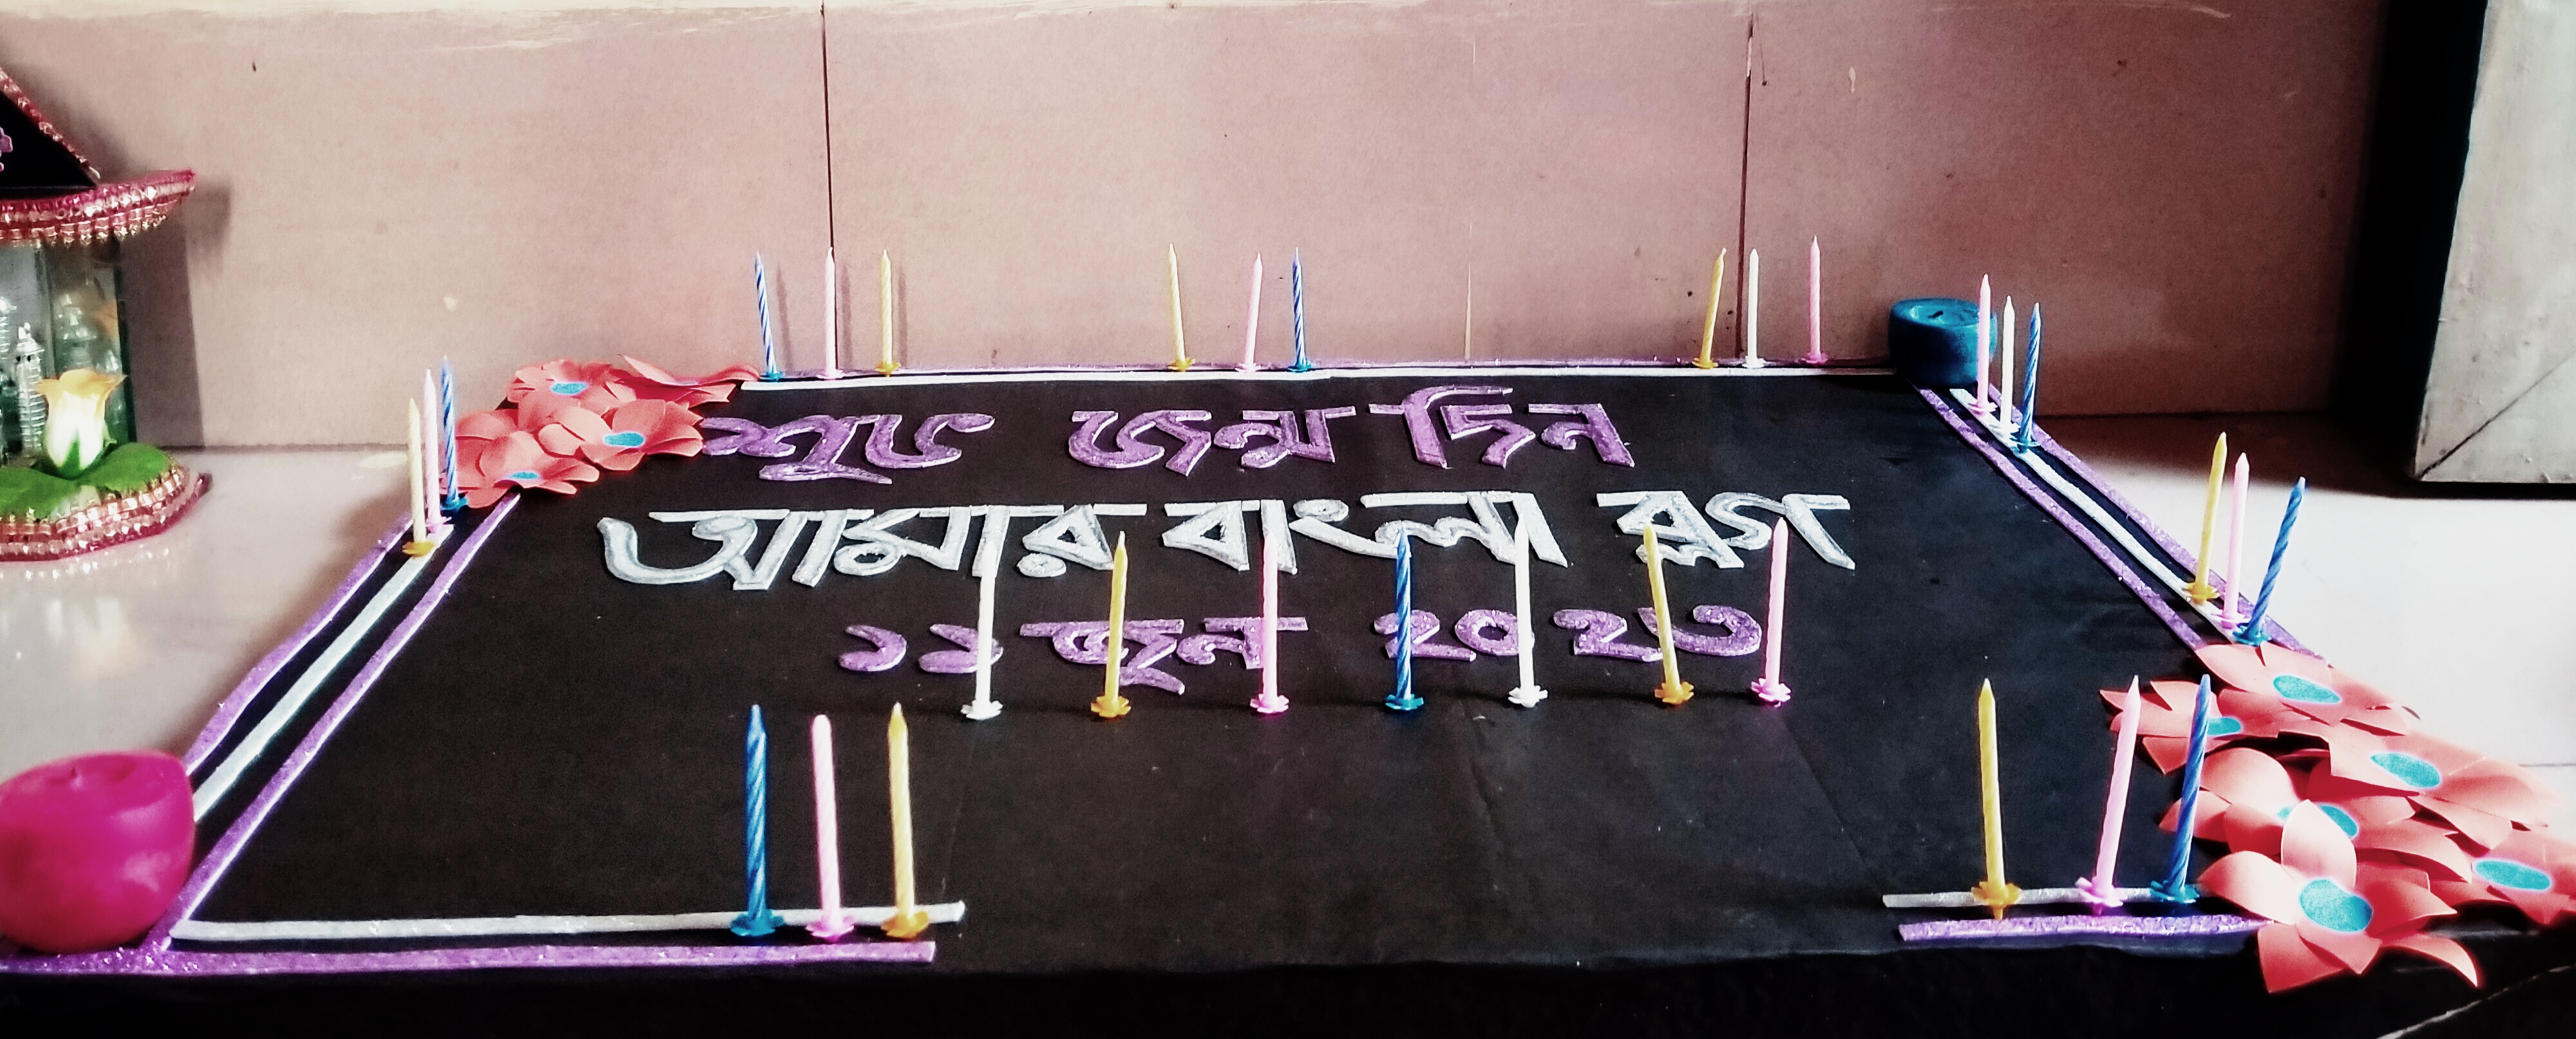 শুভ জন্মদিন
আমার বাংলা ব্লগ
১১ জুন ২০২৩